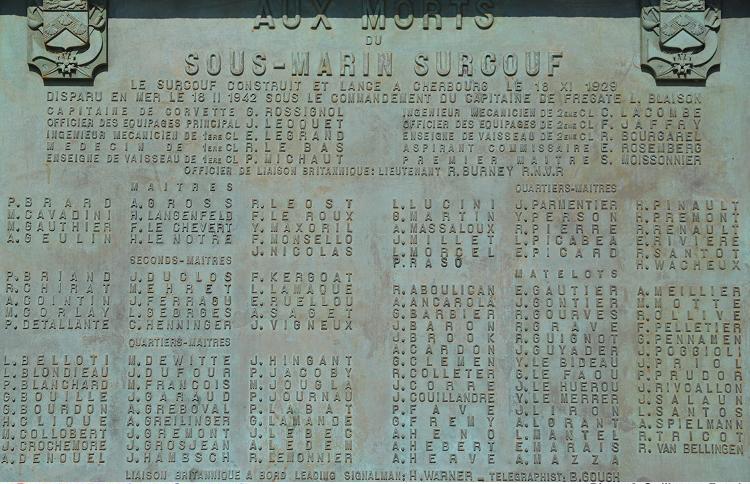 AUX MORTS
DU
SOUS-MARIN SURCOUF
LE SURCOUF CONSTRUIT ET LANCE A CHERBOURG LE 18 XI 1929
DISPARU EN MER LE 18 II 1942 SOUS LE COMMANDEMENT DU CAPITAINE DE FREGATE L. BLAISON
CAPITAINE DE CORVETTE G. ROSSIGNOL INGENIEUR MECANICIEN DE 2EME CL C. LACOMBE
OFFICIER DES EQUIPAGES PRINCIPAL J. LECQUET OFFICIER DES EQUIPAGES DE 2EME CL F. JAFFRY
INGENIEUR MECANICIEN DE 1ERE CL E. LEGRAND ENSEIGNE DE VAISSEAU DE 1ERE CL R. BOURGAREL
MEDECIN DE 1ERE CL R. LE BAS ASPIRANT COMMISSAIRE E. ROSEMBERG
ENSEIGNE DE VAISSEAU DE 1ERE CL P. MICHAUT PREMIER MAITRE S. MOISSONNIER
OFFICIER DE LIAISON BRITANNIQUE: LIEUTENANT R. BURNEY R.N.V.R
MAITRES QUARTIERS-MAITRES
P. BRARD A. GROSS R. LEOST L. LUCINI J. PARMENTIER R. PINAULT
M. CAVADINI H. LANGENFELD F. LE ROUX G. MARTIN Y. PERSON H. PREMONT
M. GAUTHIER F. LE CHEVERT Y. MAXORIL A. MASSALOUX R. PIERRE R. RENAULT
A. GEULIN H. LE NOTRE F. MONSELLO J. MILLET L. PICABEA E. RIVIERE
J. NICOLAS L. MORCEL E. PICARD R. SANTOT
SECONDS-MAITRES P. RASO H. WACHEUX
MATELOTS
P. BRIAND J. DUCLOS F. KERGOAT
R. CHIRAT M. EHRET L. LAMAQUE R. ABOULICAN E. GAUTIER A. MEILLIER
A. COINTIN J. FERRAGU E. RUELLOU A. ANCAROLA J. GONTIER M. MOTTE
M. GORLAY L. GEORGES A. SAGET G. BARBIER R. GOURVES R. OLLIVE
P. DETALLANTE C. HENNINGER J. VIGNEUX J. BARON R. GRAVE F. PELLETIER
QUARTIERS-MAITRES J. BROOK R. GUIGNOT G. PENNAMEN
L. BELLOTI M. DEWITTE J. HINGANT A. CARDON J. GUYADER J. POGGIOLI
L. BLONDIEAU J. DUFOUR P. JACOBY G. CLEMEN Y. LE BIDEAU J. PRIOL
P. BLANCHARD M. FRANCOIS M. JOUGLA R. COLLETER G. LE FAOU R. PRIDOR
G. BOUILLE J. GARAUD P. JOURNAU J. CORRE Y. LE HUEROU J. RIVOALLON
G. BOURDON A. GREBOVAL P. LABAT J. COUILLANDRE Y. LE MERRER J. SALAUN
H. CLIQUE A. GREILINGER G. LAMANDE P. FAVE J. LIRON L. SANTOS
M. COLLOBERT J. GREMONT J. LEBER G. FREMY A. LORANT A. SPIELMANN
J. CROCHEMORE J. GROSJEAN A. LEDEM A. HENO L. MANTEL R. TRICOT
A. DENOUEL J. HAMBSCH R. LEMONNIER A. HEBERT E. MARAIS R. VAN BELLINGEN
A. HERVE A. MAZZA
LIAISON BRITANNIQUE A BORD LEADING SIGNALMAN: H. WARNER - TELEGRAPHIST: B. GOUGH